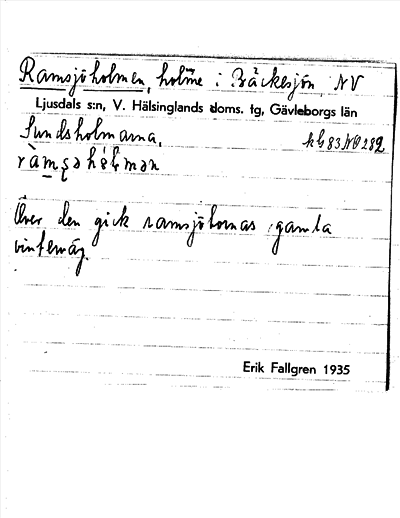 Ramsjöholmen, holme i Bäckesjön, NV
Ljusdals s:n, V. Hälsinglands doms. tg, Gävleborgs län
Sundsholmarna,
kb 83 NO 282
Över den gick ramsjöbornas gamla
vinterväg.
Erik Fallgren 1935